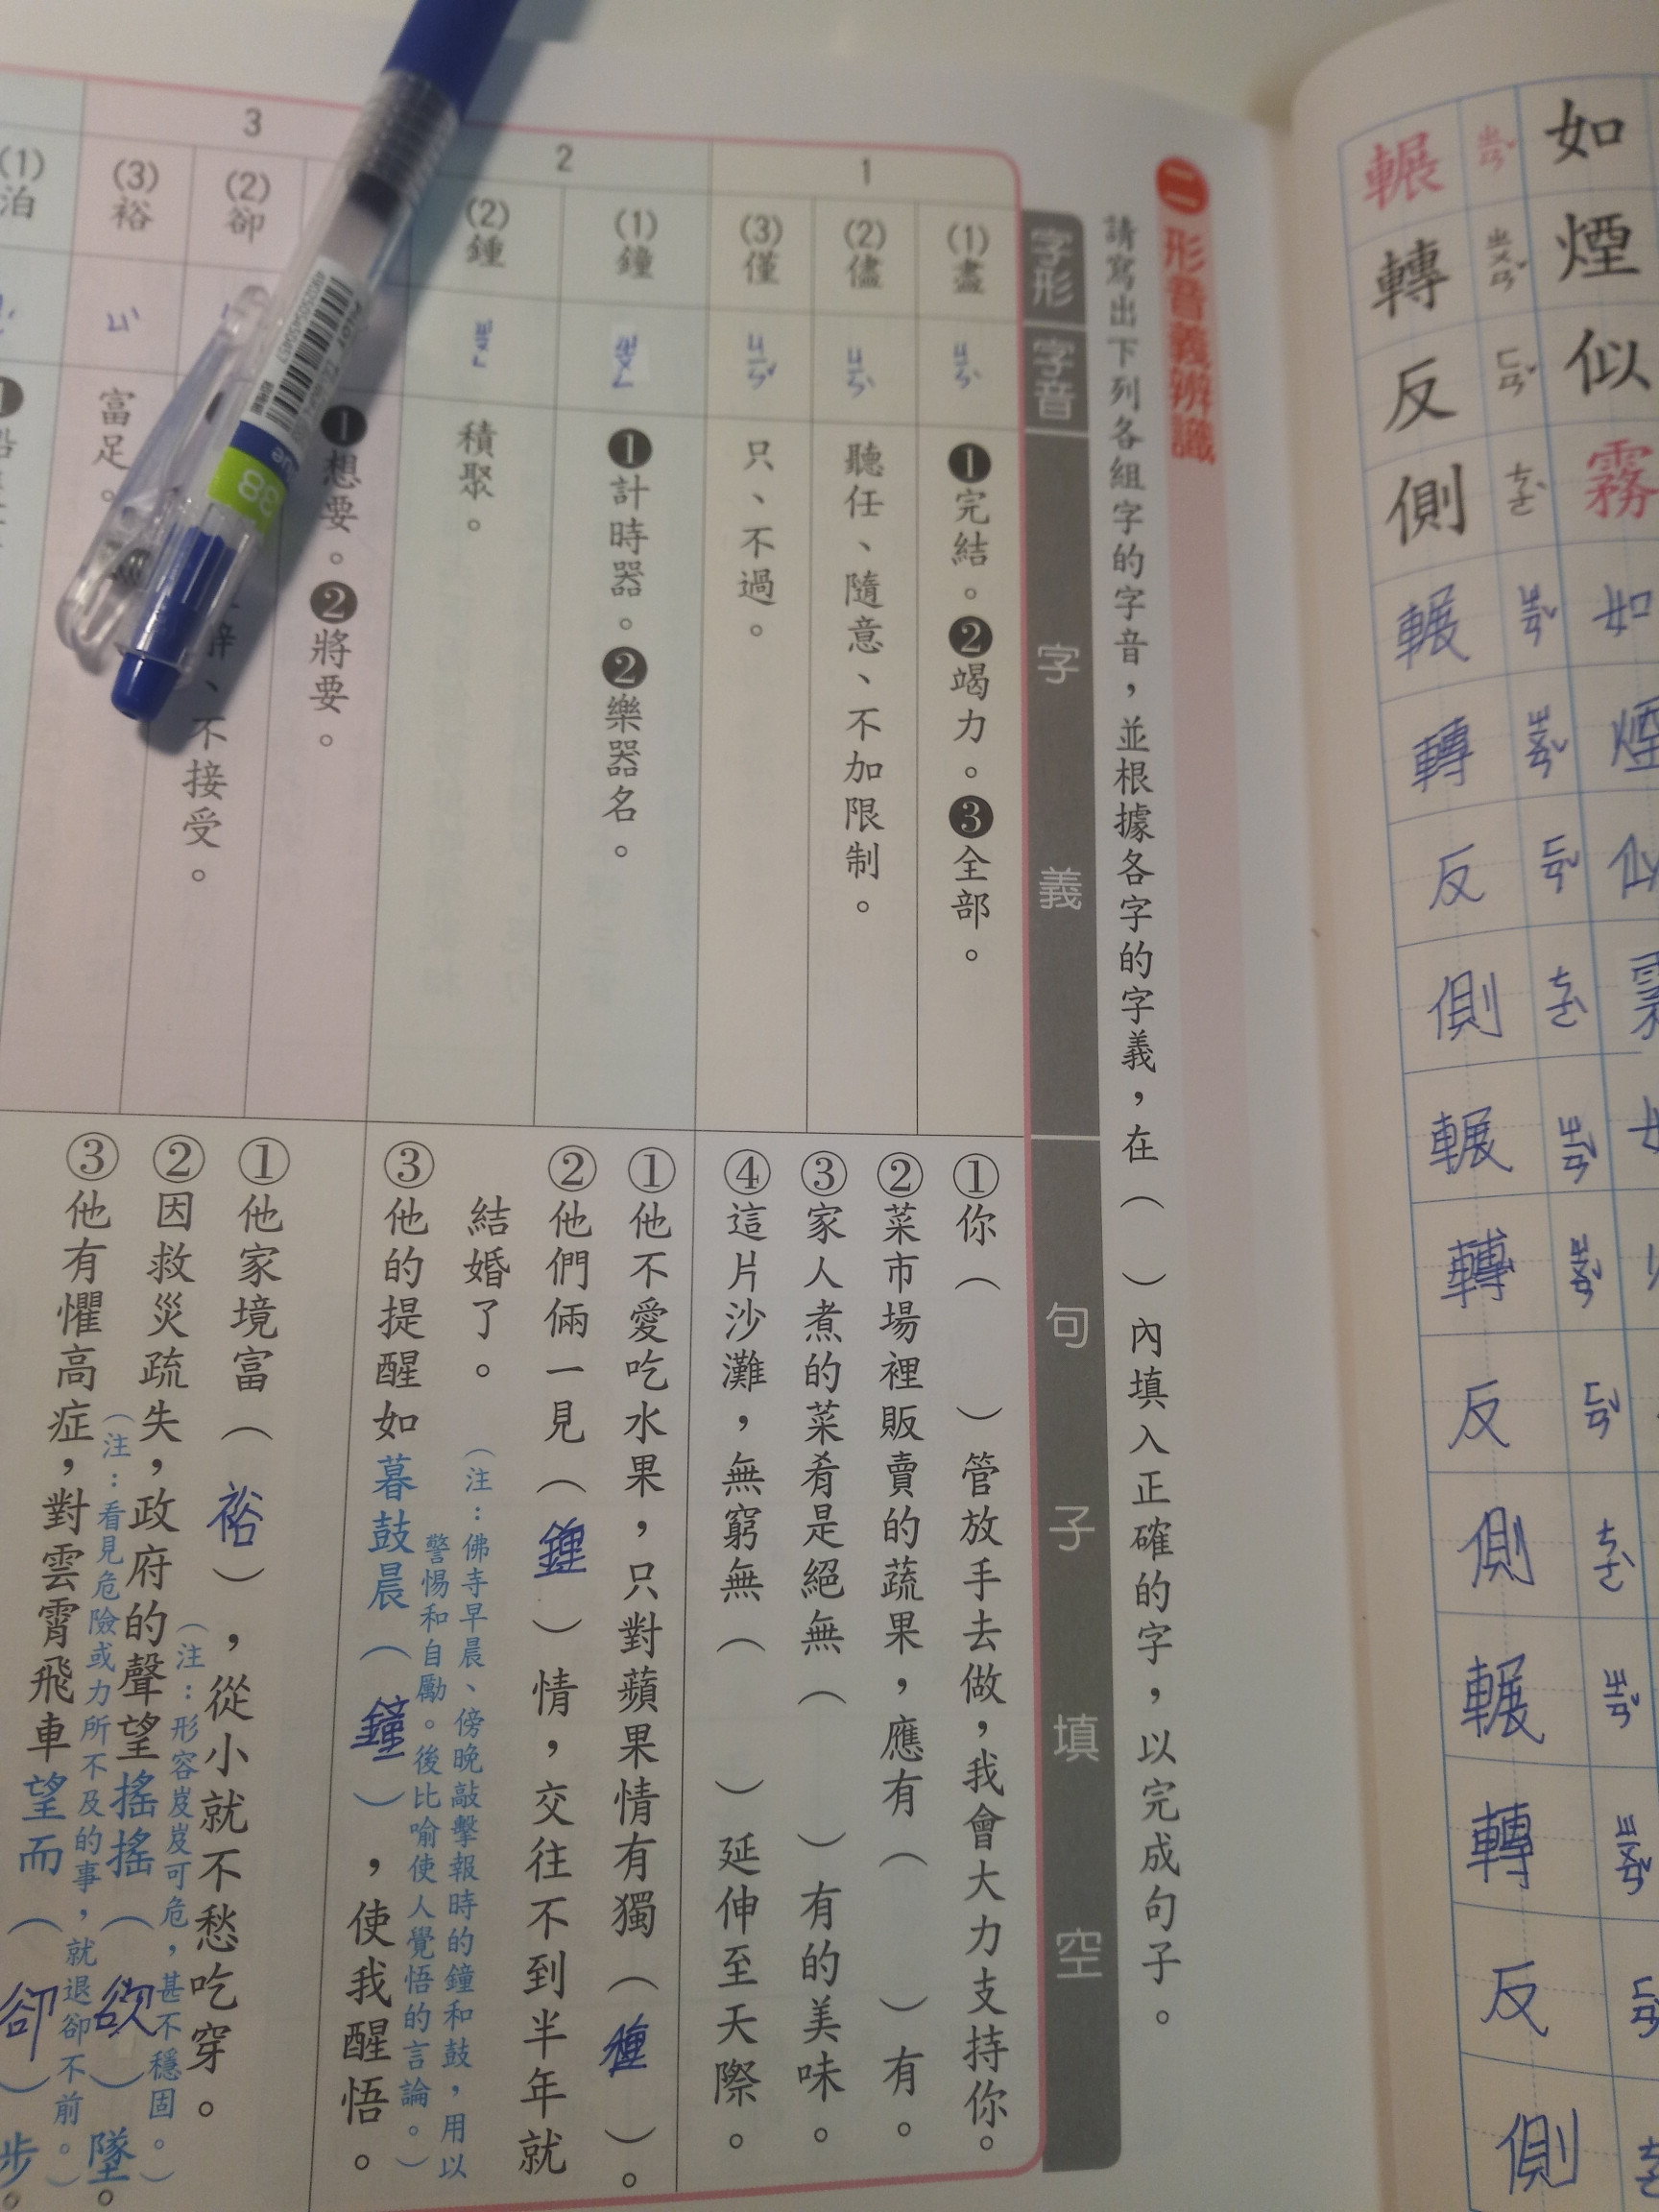 如煙似霧
如煙似霧
輾轉反側輾轉反側輾轉反側輾轉反側
ㄓㄢˇ ㄓㄨㄢˇ ㄈㄢˇ ㄘㄜˋ ㄓㄢˇ ㄓㄨㄢˇ ㄈㄢˇ ㄘㄜˋ ㄓㄢˇ ㄓㄨㄢˇ ㄈㄢˇ ㄘㄜˋ ㄓㄢˇ ㄓㄨㄢˇ
二 形音義辨識
請寫出下列各組字的字音,並根據各字的字義,在( )內填入正確的字,以完成句子。
字形 字音 字義 句子填空
1
(1)盡 ㄐㄧㄣˋ ❶完結。❷竭力。❸全部。
(2)儘 ㄐㄧㄣˋ 聽任、隨意、不加限制。
(3)僅 ㄐㄧㄣˇ 只、不過。
①你( )管放手去做,我會大力支持你。
②菜市場裡販賣的蔬果,應有( )有。
③家人煮的菜肴是絕無( )有的美味。
④這片沙灘,無窮無( )延伸至天際。
2
(1)鐘 ㄓㄨㄥ ❶計時器。❷樂器名。
(2)鍾 ㄓㄨㄥ 積聚。
①他不愛吃水果,只對蘋果情有獨( )。
②他們倆一見(鍾)情,交往不到半年就
結婚了。
(注:佛寺早晨、傍晚敲擊報時的鐘和鼓,用以
警惕和自勵。後比喻使人覺悟的言論。)
③他的提醒如暮鼓晨(鐘),使我醒悟。
3
❶想要。❷將要。
(2)卻 、不接受。
(3)裕 ㄩˋ 富足。
①他家境富(裕),從小就不愁吃穿。
(注:形容岌岌可危,甚不穩固。)
②因救災疏失,政府的聲望搖搖(欲)墜。
(注:看見危險或力所不及的事,就退卻不前。)
③他有懼高症,對雲霄飛車望而(卻)步。
(1)泊
❶
88